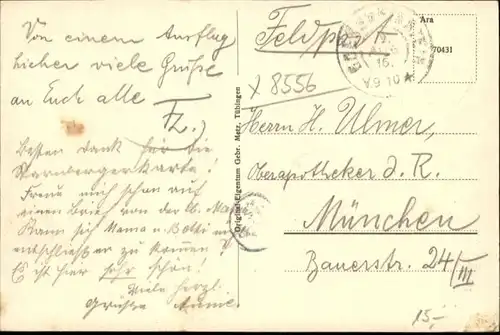 Von einem Ausflug
hieher viele Grüße
an Euch alle
Fz.
Besten Dank für die
Starnbergerkarte!
Freue mich schon auf
einen Brief von der lb. Ma
Kann sich Mama u.
entschließen zu kommen?
Es ist hier sehr schön!
Viele herzl.
Grüße
Original-Eigentum Gebr. Metz, Tübingen
Feldpost
19.
AUG
16.
V.9-10
Ara
70431
x 8556
Herrn H. Ulmer,
Oberapotheker d. R.
München
Bauerstr. 24/III
15-